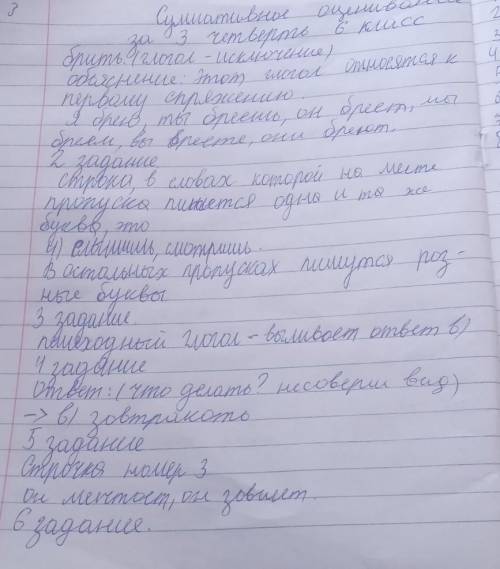 3
Сумиативное оценивание
за 3 четверть 6 класс
брить (глогол-исключение)
обяснение: этот глогол относятся к
первому спряжению
Я брею, ты бреешь, он бреет, мы
бреем, вы бреете, они бреют.
2 задание
строка, в словах которой на месте
пропуска пишется одна и та же
буква, это
4) слышишь, смотришь.
В остальных пропусках пишутся роз-
ные буквы
3 задание.
пеиеходный глогол-выливает ответ в)
4 задание
Ответ: (что делать? несоверш вид)
-> в) зовтракоть
5 задание
Строчка номер 3
он мечтает, он зовилет.
6 задание.